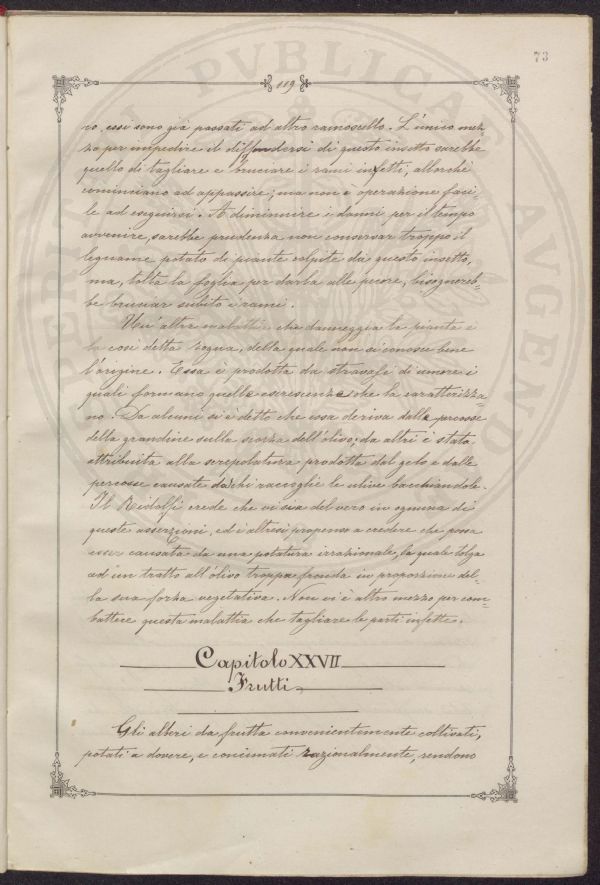 73
119
ro, essi sono già passati ad altro ramoscello. L'unico mez-
zo per impedire il diffondersi di questo insetto sarebbe
quello di tagliare e bruciare i rami infetti, allorchè
cominciano ad appassire; ma non è operazione faci-
le ad eseguirsi. A diminuire i danni per il tempo
avvenire, sarebbe prudenza non conservar troppo il
legname potato di piante colpite da questo insetto,
ma, tolta la foglia per darla alle pecore, bisognereb-
be bruciar subito i rami.
Un'altra malattia che danneggia le piante è
la così detta rogna, della quale non si conosce bene
l'origine. Essa è prodotta da stravasi di umore i
quali formano quelle escrescenze che la caratterizza-
no. Da alcuni si è detto che essa deriva dalle percosse
della grandine sulla scorza dell'olivo; da altri è stata
attribuita alla screpolatura prodotta dal gelo e dalle
percosse causate da chi raccoglie le ulive bacchiandole.
Il Ridolfi crede che vi sia del vero in ognuna di
queste asserzioni, ed è altresì propenso a credere che possa
esser causata da una potatura irrazionale, la quale tolga
ad un tratto all'olivo troppa fronda in proporzione del-
la sua forza vegetativa. Non vi è altro mezzo per com-
battere questa malattia che tagliare le parti infette.
Capitolo XXVII
Frutti
Gli alberi da frutta convenientemente coltivati,
potati a dovere, e concimati razionalmente, rendono
PERICULIS PUBLICAE AUGENDAE